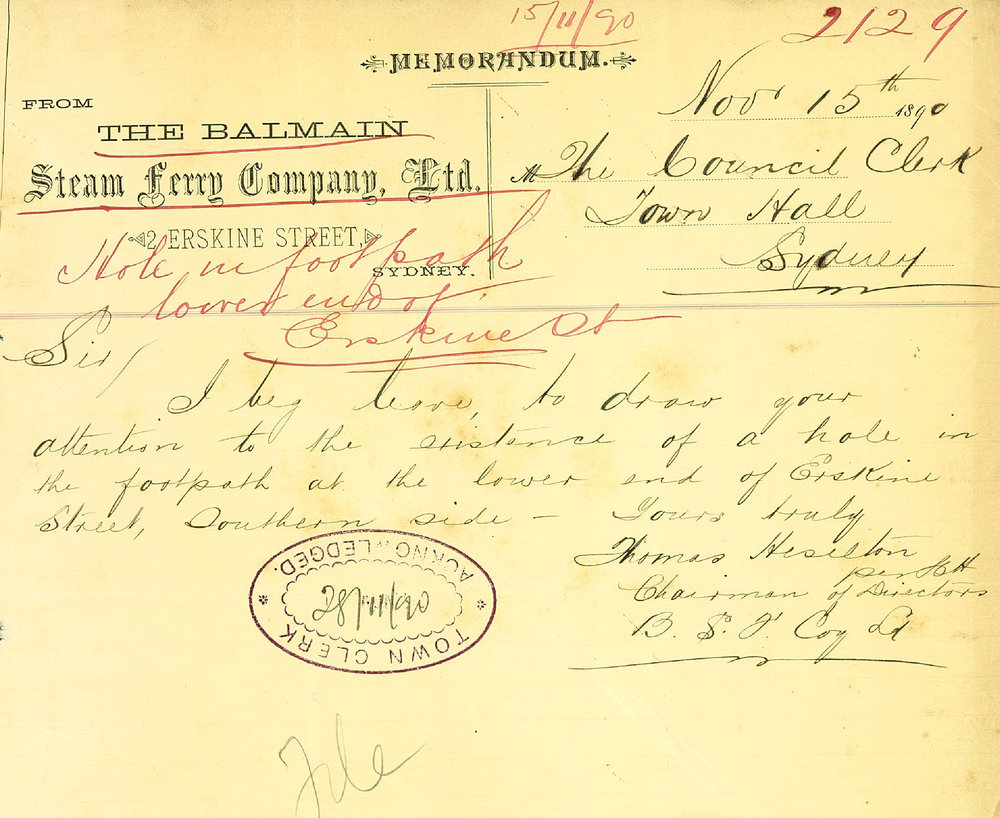 15/11/90
2129
MEMORANDUM.
FROM
THE BALMAIN
Steam Ferry Company, Ltd.
2, ERSKINE STREET,
SYDNEY.
Nov 15th 1890
The Council Clerk
Town Hall
Sydney
Hole in footpath
lower end of
Erskine St
Sir
I beg leave, to draw your
attention to the existence of a hole in
the footpath at the lower end of Erskine
Street, Southern side - Yours truly
Thomas Heselton
per
Chairman of Directors
B. S. F. Coy Ld
TOWN CLERK
ACKNOWLEDGED.
28/11/90
File